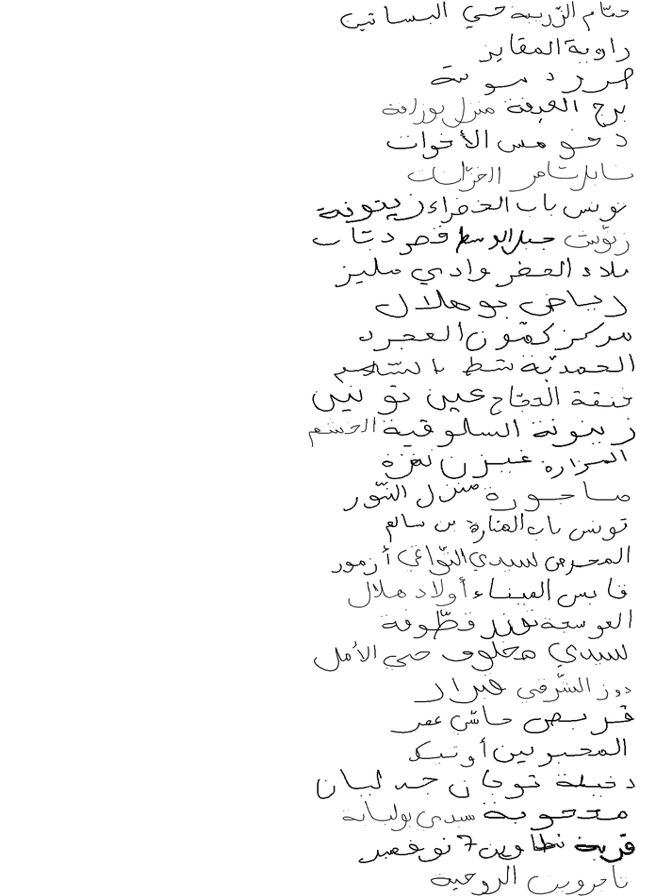 حمّام الزريبة حي البساتين
راوية المقايز
صرر دموسة
برج الغيفة منزل بوزلفة
دخو مس الأخوات
نابل شاص الغزالات
تونس باب الخضراء زيتونة
زنّوش جبل الوسط قصر دبّاب
ملاء الصخر وادي مليز
رياض بوهلال
مركز كمّون العجرد
الحمديّة شط السّلام
خنقة الحجّاج عين تونين
زيتونة السلوقية الحشم
المزارة غيزن نفزة
صاحورة منزل النّور
تونس باب المنارة بن سالم
المحرص لسيدي التواتي أزمور
قابس الميناء أولاد هلال
العوسجة نفزة قطّوفة
لسيدي مخلوف حي الأمل
دوز الشرقي ضرار
قربص حاشي عمر
المحبوبين أوتيك
دخيلة توجان جدليان
محجوبة سيدي بولبابة
قرية تطاوين 7 نوفمبر
تاجروين الروحية